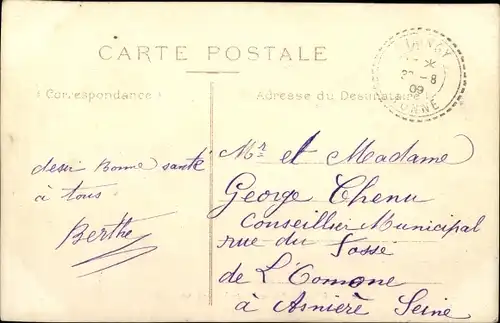 CARTE POSTALE
Correspondance
Adresse du Destinataire
8
09
YONNE
desir Bonne santé
à tous
Berthe
Mr et Madame
George Chenu
Conseiller Municipal
rue du Fossé
de L'Comone
à Asnière Seine